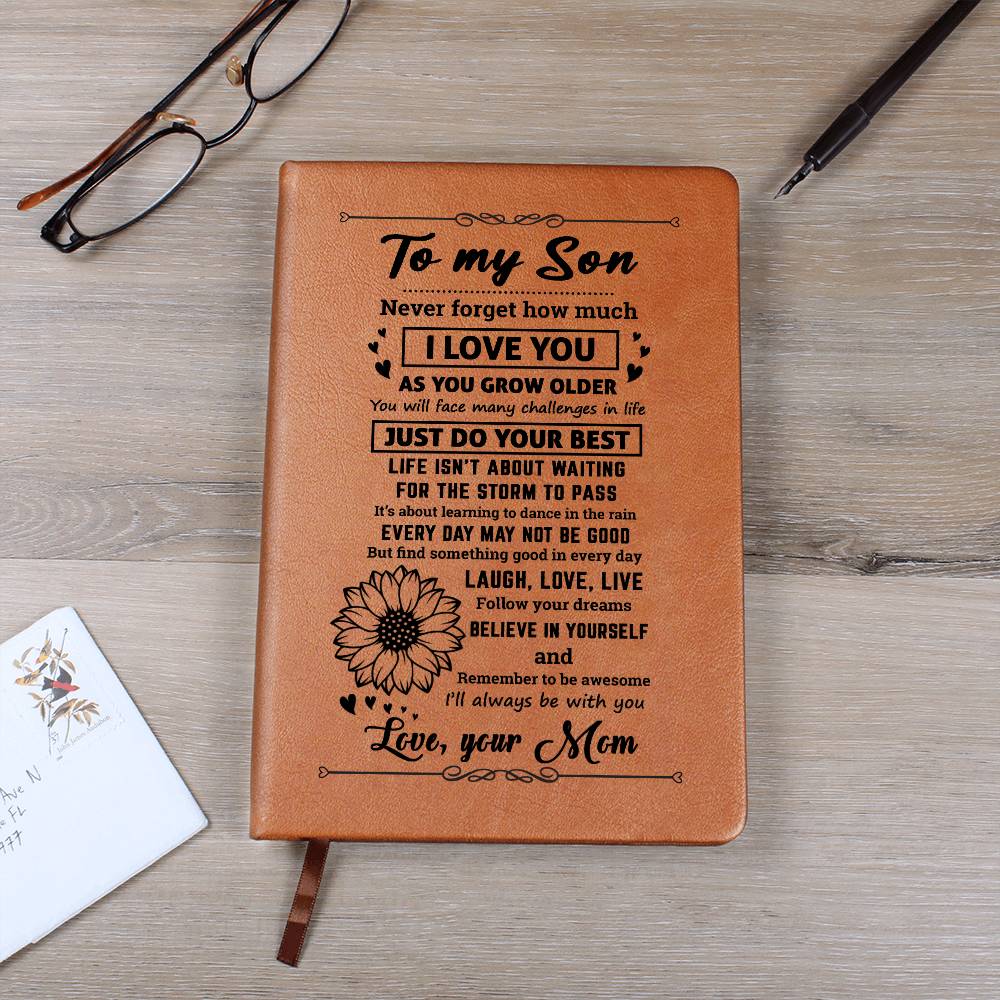 To my Son
Never forget how much
I LOVE YOU
AS YOU GROW OLDER
You will face many challenges in life
JUST DO YOUR BEST
LIFE ISN'T ABOUT WAITING
FOR THE STORM TO PASS
It's about learning to dance in the rain
EVERY DAY MAY NOT BE GOOD
But find something good in every day
LAUGH, LOVE, LIVE
Follow your dreams
BELIEVE IN YOURSELF
and
Remember to be awesome
I'll always be with you
Love, your Mom
John James Audubon
Ave N
FL
977